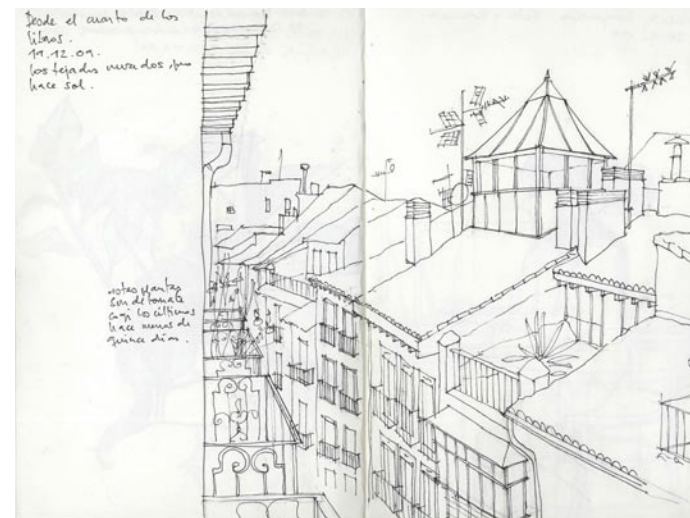 Desde el cuarto de los
libros.
19.12.09.
los tejados nevados, pero
hace sol.
estas plantas
son de tomate
cogí los últimos
hace menos de
quince días.